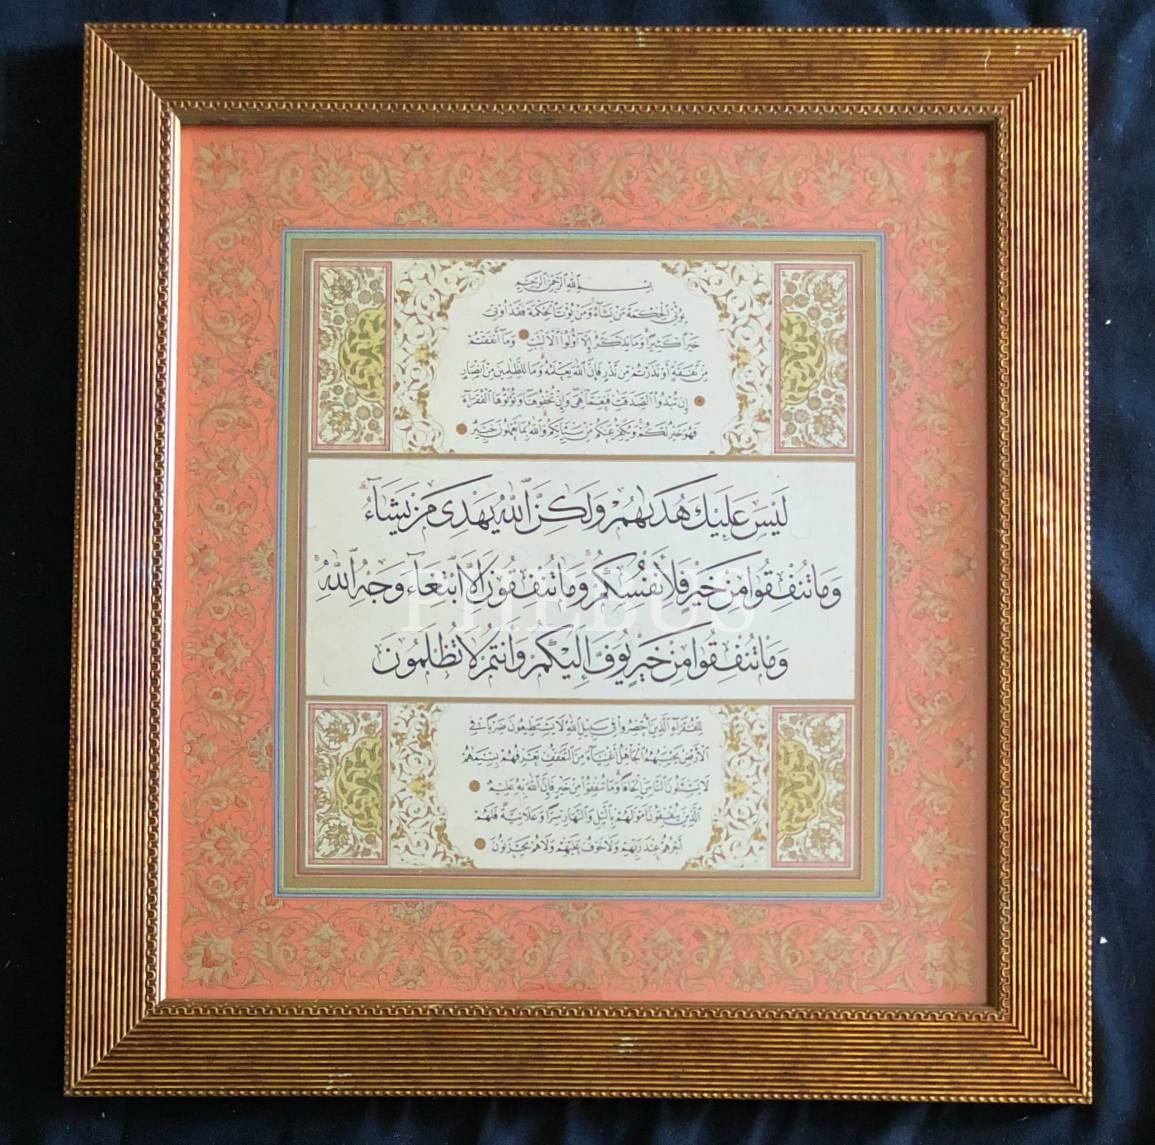 بسم الله الرحمن الرحيم
يؤتي الحكمة من يشاء ومن يؤت الحكمة فقد أوتي
خيرا كثيرا وما يذكر إلا أولوا الألباب وما أنفقتم
من نفقة أو نذرتم من نذر فإن الله يعلمه وما للظلمين من أنصار
إن تبدوا الصدقت فنعما هي وإن تخفوها وتؤتوها الفقراء
فهو خير لكم ويكفر عنكم من سيئاتكم والله بما تعملون خبير
لَيْسَ عَلَيْكَ هُدَىهُمْ وَلَكِنَّ ٱللَّهَ يَهْدِى مَنْ يَشَآءُ
وَمَا تُنْفِقُوا مِنْ خَيْرٍ فَلِأَنْفُسِكُمْ وَمَا تُنْفِقُونَ إِلَّا ٱبْتِغَآءَ وَجْهِ ٱللَّهِ
وَمَا تُنْفِقُوا مِنْ خَيْرٍ يُوَفَّ إِلَيْكُمْ وَأَنْتُمْ لَا تُظْلَمُونَ
PHEBUS
للفقراء الذين أحصروا في سبيل الله لا يستطيعون ضربا في
الأرض يحسبهم الجاهل أغنياء من التعفف تعرفهم بسيمهم
لا يسئلون الناس إلحافا وما تنفقوا من خير فإن الله به عليم
الذين ينفقون أموالهم بالليل والنهار سرا وعلانية فلهم
أجرهم عند ربهم ولا خوف عليهم ولا هم يحزنون